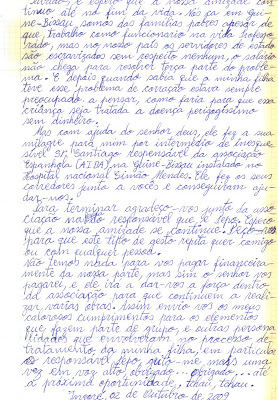 surado, e espero que a nossa amizade con-
tinue até no fim da vida. Nós por em Gui-
né-Bissau somos das famílias pobres apesar de
que trabalho como funcionário na vida profesgo
rado, mas no nosso país os servidores de estado
são escravizados sem respeito nenhum, o salário
não chega para resolver terça parte do proble-
ma. E depois quando sabia que a minha filha
teve esse problema de coração estava sempre
preocupado a pensar, como faria para que essa
criança seja tratada a doença perigosissimo
sem dinheiro.
Mas com ajuda do senhor deus, ele fez a sua
milagre para mim por intermédio de inesque
sível Sr. Santiago responsável da associação
Espanhola (AIDA) na Guiné-Bissau instalado no
Hospital nacional Simão Mendes. Ele fez os seus
corredores junto a vocês e conseguiram aju-
dar-nos.
Para terminar agradeço-vos junto da asso-
ciação muito responsável que é Pepo. Quero
que a nossa amizade se continue. Peço-vos
para que este tipo de gesto repita quer comigo
ou com qualquer pessoa.
Não temos nada para vos pagar financeira-
mente da nossa parte, mas sim o senhor vos
pagarei, e ele irá a dar-vos a força dentro
da associação para que continuem a reali-
zar várias obras. Assim envio-vos os meus
calorosos cumprimentos para os elementos
que fazem parte de grupo, e outras persona
lidades que envolveram no processo de
tratamento da minha filha, em particular
o responsável Pepo, grito-me mais uma
vez em voz alto, obrigado... obrigado... até
a próxima oportunidade, tchau, tchau.
02 de Outubro de 2009